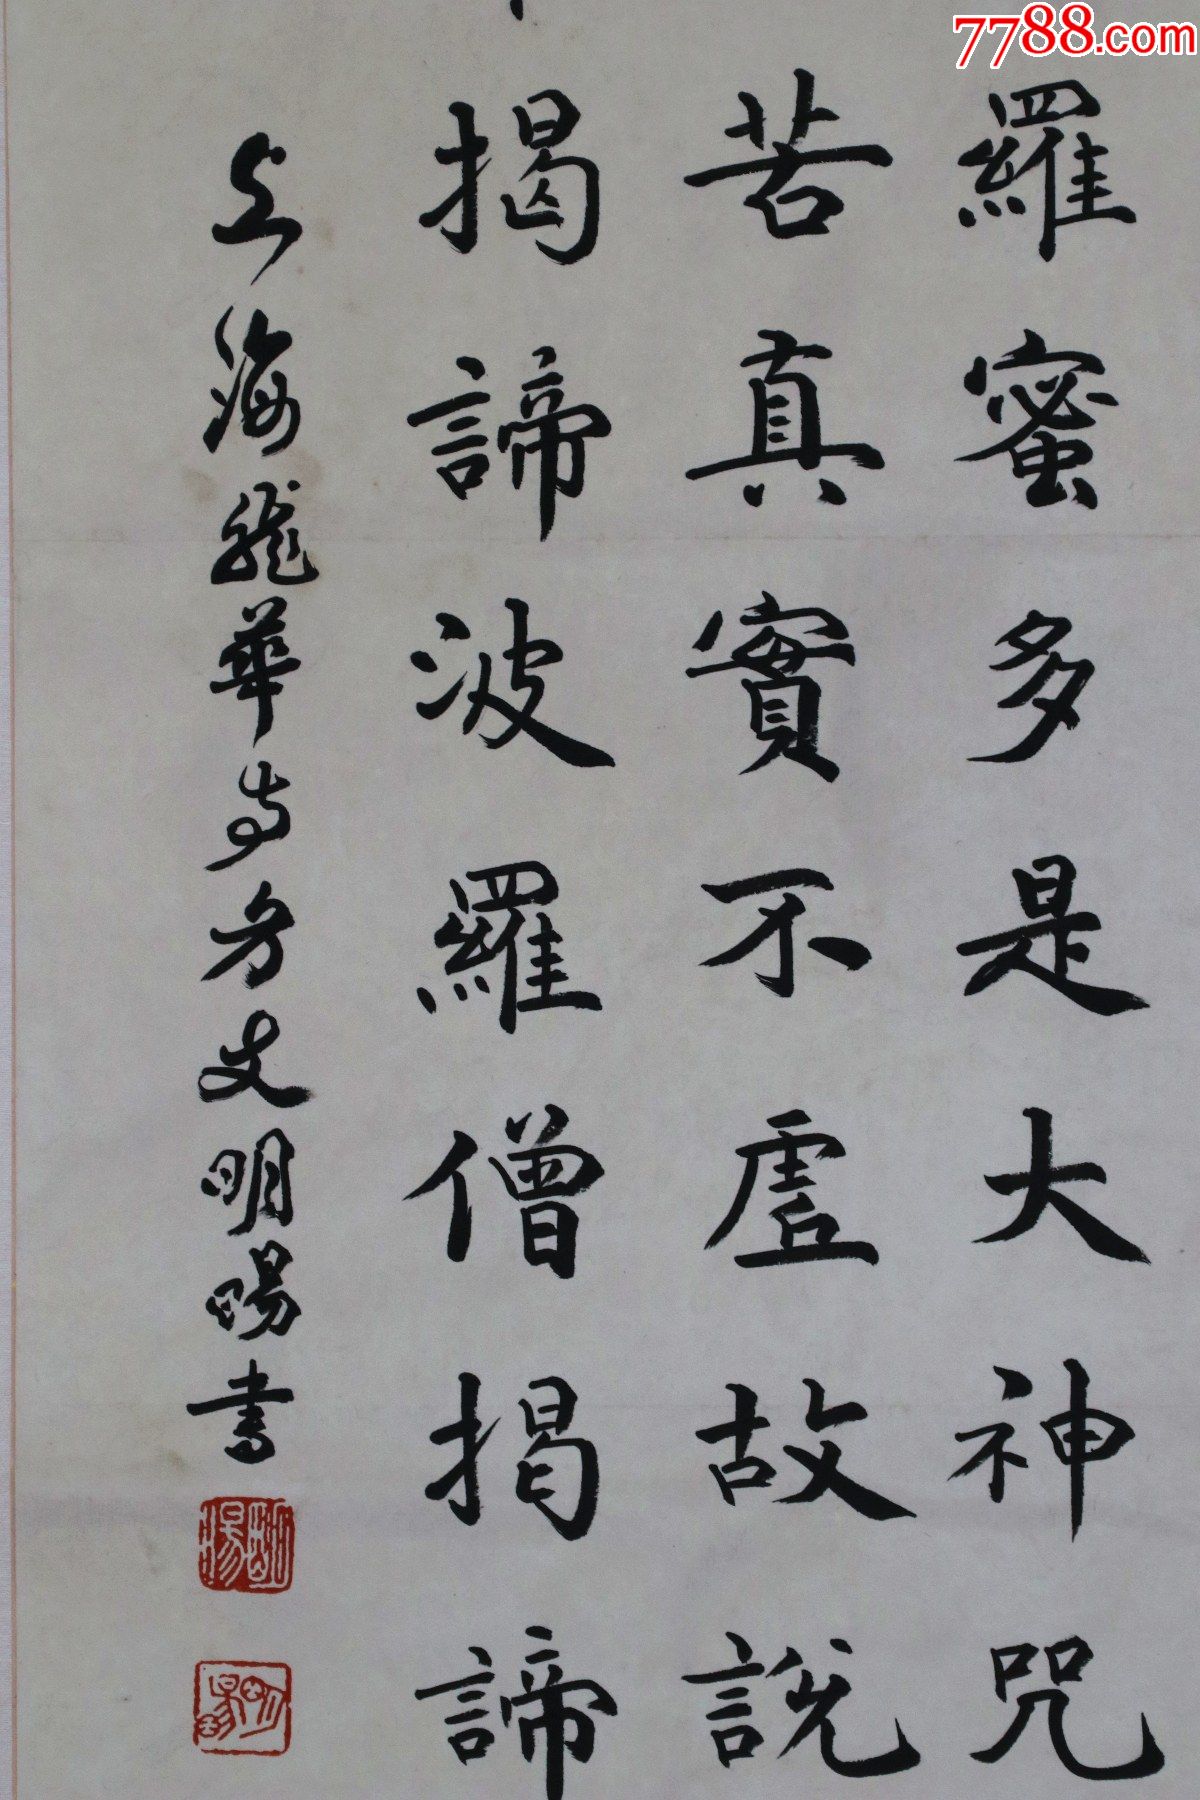 7788.com
羅蜜多是大神咒
苦真實不虛故說
揭諦波羅僧揭諦
上海龍華寺方丈明暘書
明暘
明暘